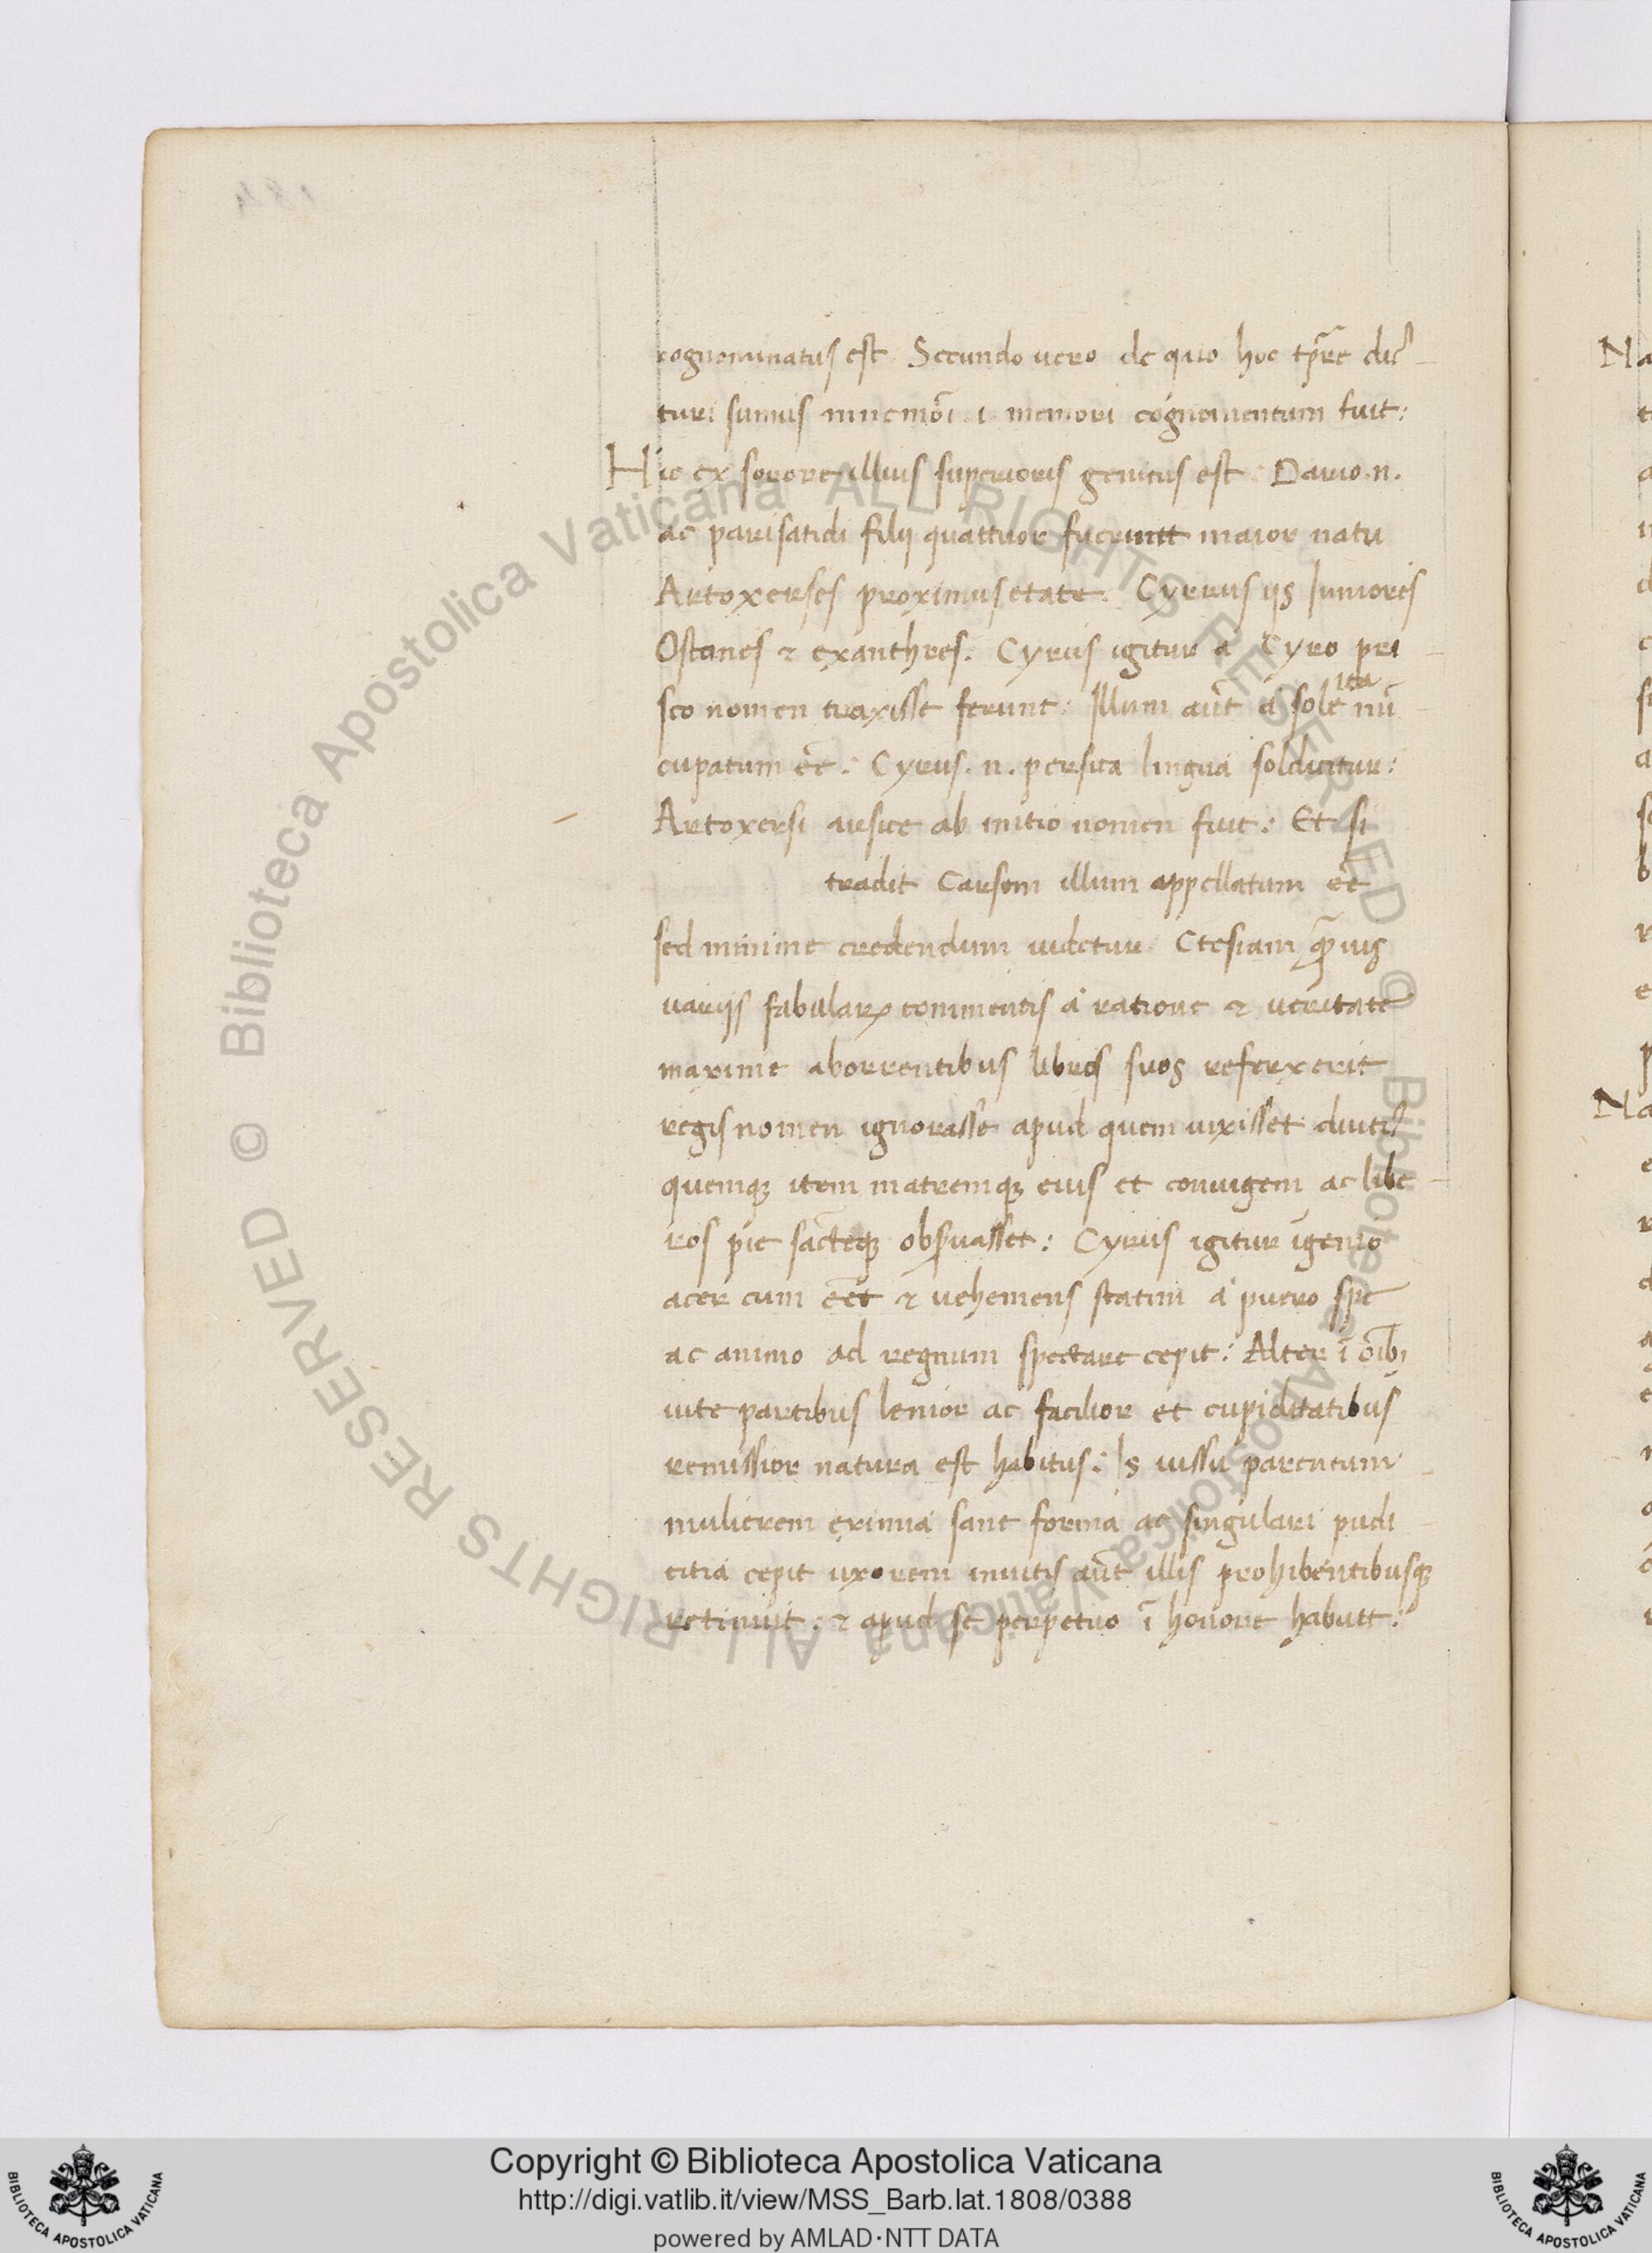 cognominatus est Secundo uero de quo hoc tp̄re dic
turi sumus mnemōi .i. memori cognomentum fuit:
Hic ex sorore illius superioris genitus est: Dario .n.
ac parisatidi filij quattuor fuerunt maior natu
Artoxerses proximus etate. Cyrus ijs Juniores
Ostanes & exanthres. Cyrus igitur a Cyro pri
sco nomen traxisse ferunt: Illum aūt a sole ita nū
cupatum eē: Cyrus .n. persica lingua sol dicitur:
Artoxersi arsice ab initio nomen fuit: Et si
tradit Carsem illum appellatum eē
sed minime credendum uidetur Ctesiam
uarijs fabularꝝ commentis a ratione & ueritate
maxime aborrentibus libros suos referxerit
regis nomen ignorasse apud quem uixisset
quemqꝫ item matremqꝫ eius et coniugem ac libe
ros pie sācteqꝫ obseruasset: Cyrus igitur īgenio
acer cum eēt & uehemens statim a puero spe
ac animo ad regnum spectare cepit: Alter ī oībꝫ
uite partibus lenior ac facilior et cupiditatibus
remissior natura est habitus: Is iussu parentum
mulierem eximia sane forma ac singulari pudi
citia cepit uxorem inuitis aūt illis prohibentibusqꝫ
retinuit: & apud se perpetuo ī honore habuit:
Na
Na
© Biblioteca Apostolica Vaticana ALL RIGHTS RESERVED © Biblioteca Apostolica Vaticana ALL RIGHTS RESERVED
Copyright © Biblioteca Apostolica Vaticana
http://digi.vatlib.it/view/MSS_Barb.lat.1808/0388
powered by AMLAD·NTT DATA
BIBLIOTECA APOSTOLICA VATICANA
BIBLIOTECA APOSTOLICA VATICANA